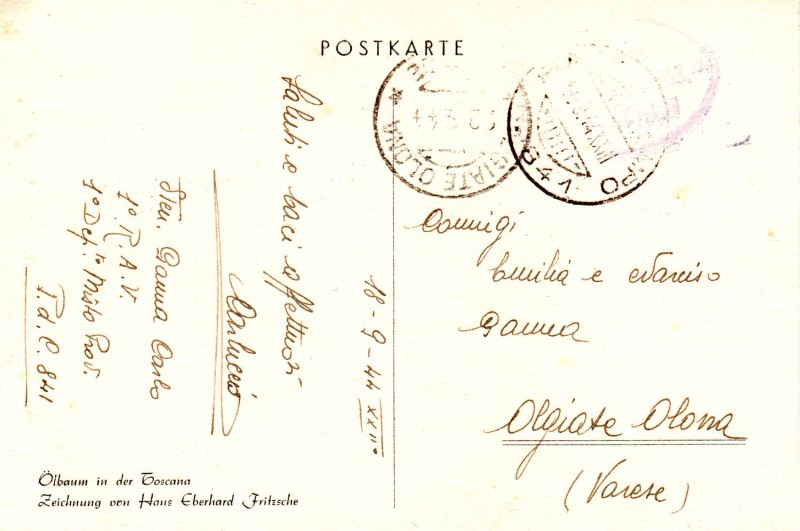 POSTKARTE
Saluti e baci affettuosi
Carluccio
18-9-44 XXII°
Ganna Carlo
1° R.A.V.
1° Dep.to Misto Prov.
P.d.C. 841
Coniugi
Emilia e Narciso
Ganna
Olgiate Olona
(Varese)
OLGIATE OLONA
841
Ölbaum in der Toscana
Zeichnung von Hans Eberhard Fritzsche